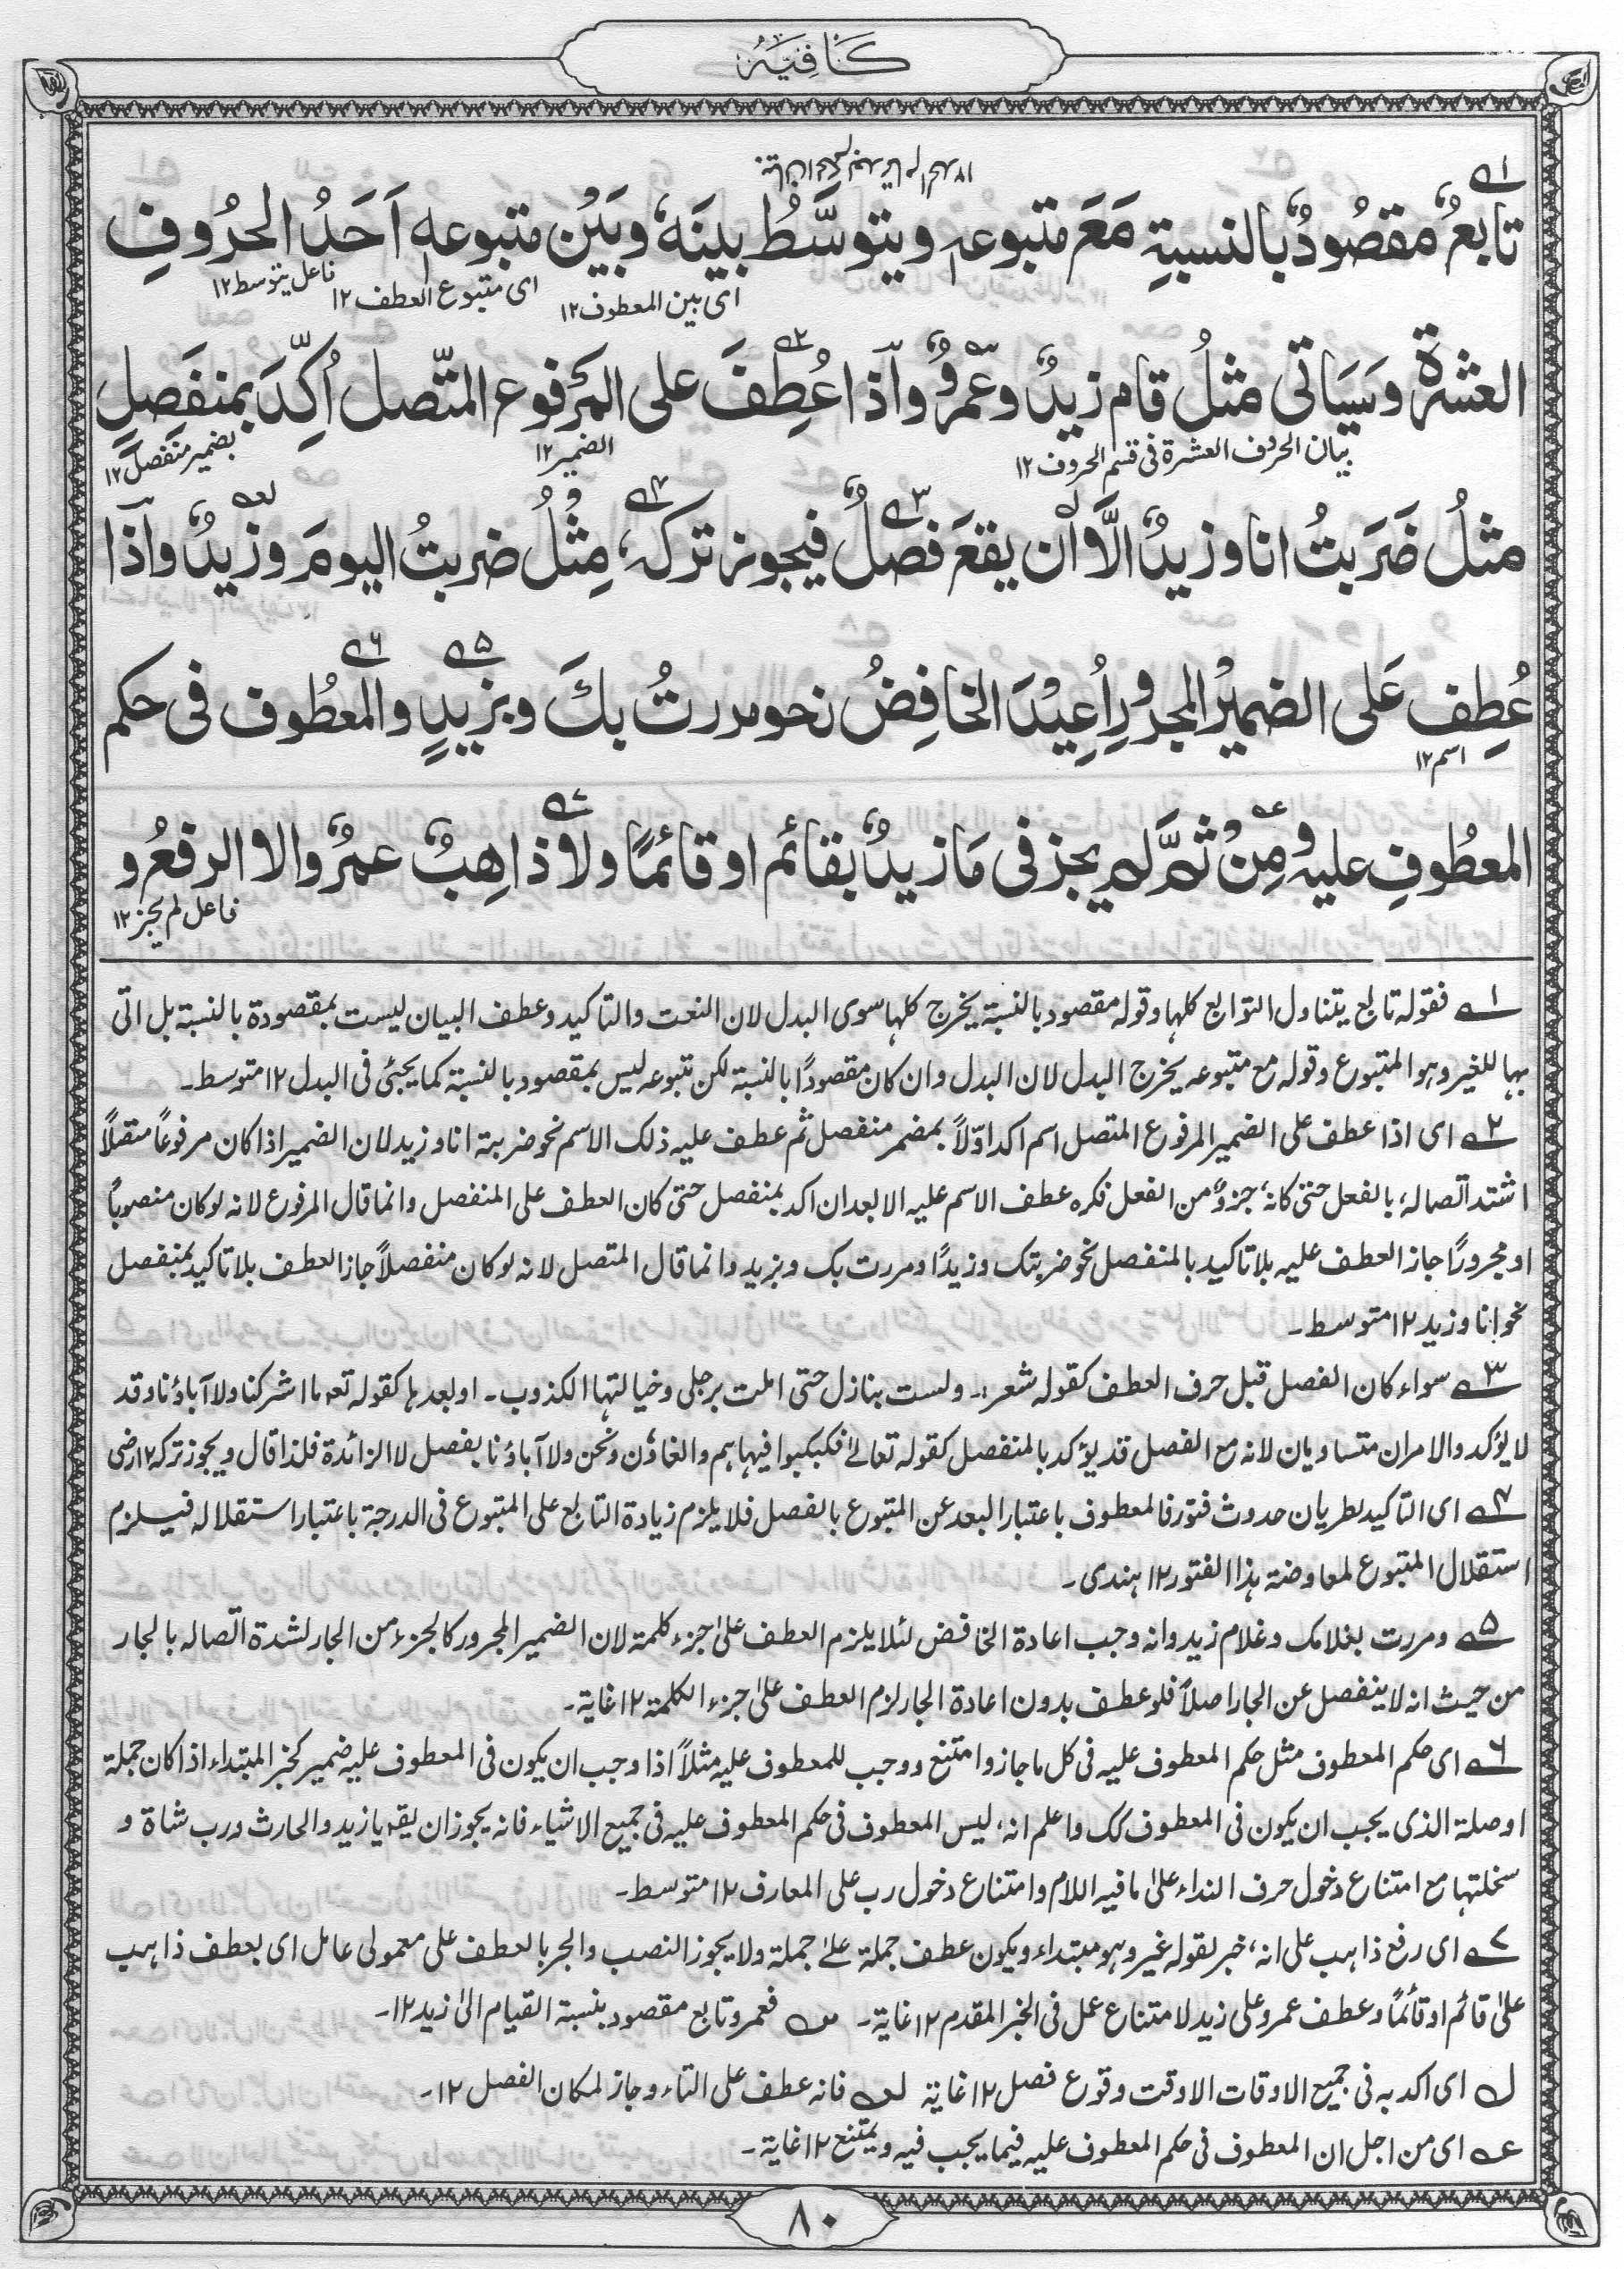 كَافِيَهْ
تابعٌ مقصُودٌ بالنسبةِ مَعَ متبوعہٖ ويتوسَّطُ بينَهٗ وبَيْن متبوعهٖ اَحَدُ الحرُوفِ
اى بين المعطوف ١٢ اى متبوع العطف ١٢ فاعل يتوسط ١٢
العشرة وسَيَاتى مثلُ قام زيدٌ وعمرٌو واذا عُطِفَ على المرفوع المتّصل اُكِّدَ بمنفَصِلٍ
بيان الحروف العشرة فى قسم الحروف ١٢ الضمير ١٢ بضمير منفصل ١٢
مثلُ ضَرَبتُ انا وزيدٌ الَّا ان يقعَ فصلٌ فيجوز تركہٗ مِثْلُ ضربتُ اليومَ وزيدٌ واذا
عُطِف عَلى الضميْر المجرورِ اُعِيْدَ الخافِضُ نحو مررتُ بكَ وبزيدٍ والمعطُوف فى حكم
اسم ١٢
المعطُوفِ عليہ ومِنْ ثَمَّ لم يجز فى مَا زيدٌ بقائم او قائمًا ولا ذاهِبٌ عمرٌو الا الرفعُ و
فاعل لم يجز ١٢
١ فقوله تابع يتناول التوابع كلها وقوله مقصود بالنسبة يخرج كلها سوى البدل لان النعت والتاكيد وعطف البيان ليست بمقصودة بالنسبة بل اتى
بها للغير وهو المتبوع وقوله مع متبوعه يخرج البدل لان البدل وان كان مقصودًا بالنسبة لكن متبوعه ليس بمقصود بالنسبة كما يجئ فى البدل ١٢ متوسط۔
٢ اى اذا عطف على الضمير المرفوع المتصل اسم اكد اوّلاً بمضمر منفصل ثم عطف عليه ذلك الاسم نحو ضربت انا وزيد لان الضمير اذا كان مرفوعًا متصلاً
اشتد اتّصاله بالفعل حتى كانهٗ جزؤ من الفعل فكره عطف الاسم عليه الا بعد ان اكد بمنفصل حتى كان العطف على المنفصل وانما قال المرفوع لانه لو كان منصوبًا
او مجرورًا جاز العطف عليه بلا تاكيد بالمنفصل نحو ضربتك وزيدًا ومررت بك وبزيد وانما قال المتصل لانه لو كان منفصلاً جاز العطف بلا تاكيد بمنفصل
نحو انا وزيد ١٢ متوسط۔
٣ سواء كان الفصل قبل حرف العطف كقوله شعر ؛۔ ولست بنازل حتى املت برجلى وخيالتها الكذوب۔ او بعدہا كقوله تعه ما اشركنا ولا آباؤنا وقد
لا يؤكد والامران متساويان لانه مع الفصل قد يؤكد بالمنفصل كقوله تعالٰى فكبكبوا فيها ہم والغاوٗن ونحن ولا آباؤنا بفصل لا الزائدة فلذا قال ويجوز تركه ١٢ رضى
٤ اى التاكيد لطريان حدوث فتور فالمعطوف باعتبار البعد عن المتبوع بالفصل فلا يلزم زيادة التابع على المتبوع فى الدرجة باعتبار استقلاله فيلزم
استقلال المتبوع لمعاوضة ہذا الفتور ١٢ ہندى۔
٥ ومررت بغلامك وغلام زيد وانه وجب اعادة الخافض لئلا يلزم العطف علٰى جزء كلمة لان الضمير المجرور كالجزء من الجار لشدة اتّصاله بالجار
من حيث انه لا ينفصل عن الجار اصلاً فلو عطف بدون اعادة الجار لزم العطف علٰى جزء الكلمة ١٢ غاية۔
٦ اى حكم المعطوف مثل حكم المعطوف عليه فى كل ما جاز وامتنع ووجب للمعطوف عليه مثلاً اذا وجب ان يكون فى المعطوف عليه ضمير كخبر المبتداء اذا كان جملة
او صلة الذى يجب ان يكون فى المعطوف كك واعلم انهٗ ليس المعطوف فى حكم المعطوف عليه فى جميع الاشياء فانه يجوز ان يقہ يا زيد والحارث ورب شاة و
سخلتها مع امتناع دخول حرف النداء علٰى ما فيه اللام وامتناع دخول رب على المعارف ١٢ متوسط۔
٧ اى رفع ذاہب على انهٗ خبر لقوله عمرو ہو مبتداء ويكون عطف جملة علٰى جملة ولا يجوز النصب والجر بالعطف على معمولى عامل اى بعطف ذاہب
علٰى قائم او قائمًا وعطف عمرو على زيد لامتناع عمل فى الخبر المقدم ١٢ غاية۔ س فعمرو تابع مقصود بنسبة القيام الىٰ زيد ١٢۔
ل اى اكد به فى جميع الاوقات الا وقت وقوع فصل ١٢ غاية لعه فانه عطف على التاء وجاز لمكان الفصل ١٢۔
عه اى من اجل ان المعطوف فى حكم المعطوف عليه فيما يجب فيه ويمتنع ١٢ غاية۔
٨٠